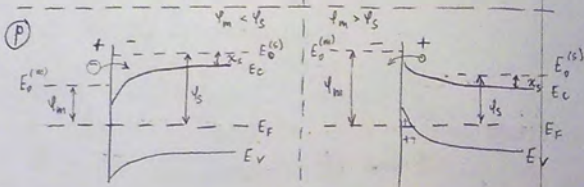 φm < φs
φm > φs
P
+ −
E₀⁽ᵐ⁾
φm
−
E₀⁽ˢ⁾
χs
Ec
φs
EF
EV
− +
E₀⁽ᵐ⁾
φm
−
E₀⁽ˢ⁾
χs
Ec
φs
EF
++
EV